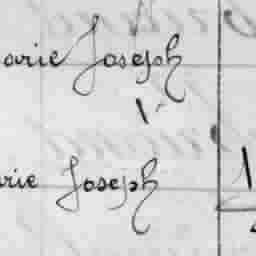 arie Joseph
rie Joseph